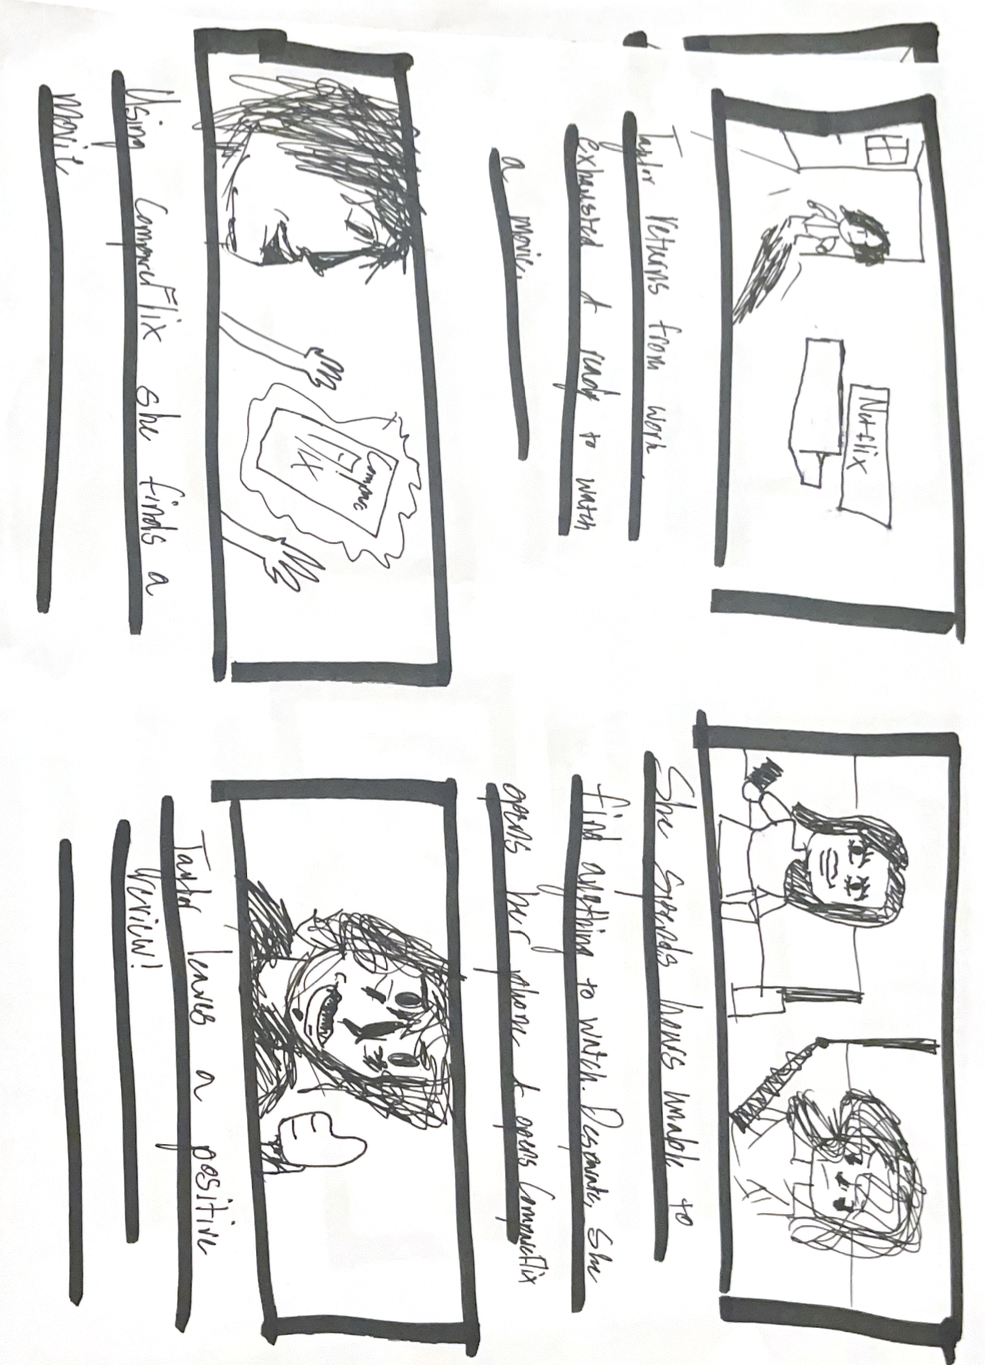 Netflix
Taylor returns from work
exhausted & ready to watch
a movie.
She spends hours unable to
find anything to watch. Desperate, she
opens her phone & opens CompareFlix
Compare
Flix
Using CompareFlix she finds a
movie
Taylor leaves a positive
review!